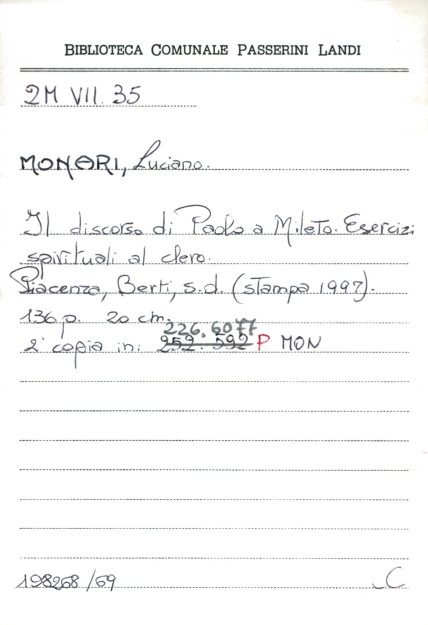 BIBLIOTECA COMUNALE PASSERINI LANDI
2M VII. 35
MONARI, Luciano.
Il discorso di Paolo a Mileto. Esercizi
spirituali al clero.
Piacenza, Berti, s.d. (stampa 1997).
136 p. 20 cm.
226.6077
2ª copia in: 252.592 P MON
198268/69
C